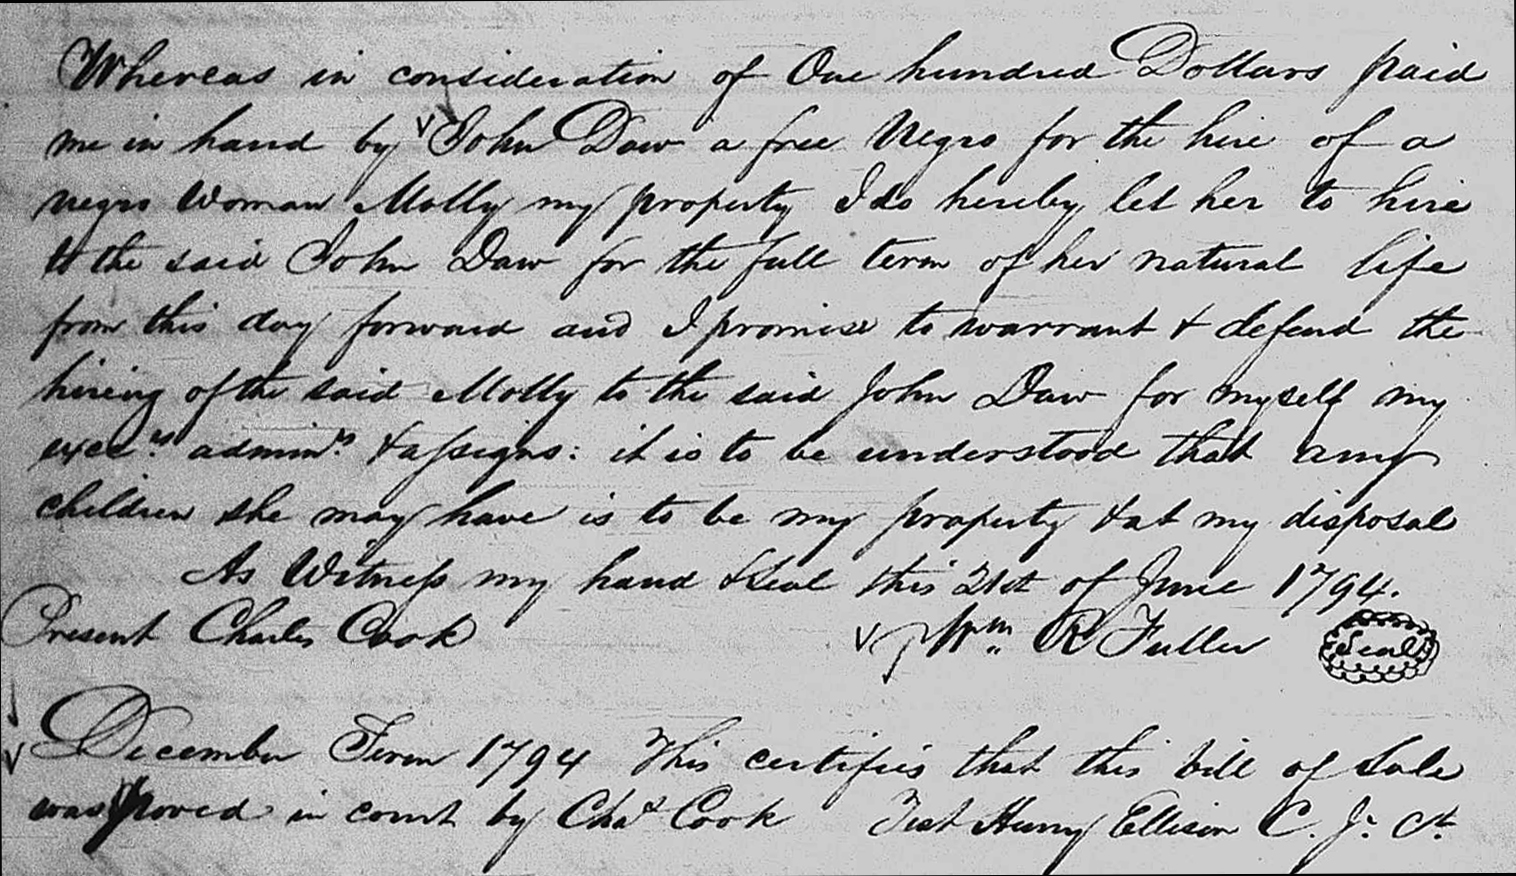 Whereas in consideration of One hundred Dollars paid
me in hand by John Daw a free Negro for the hire of a
negro Woman Molly my property I do hereby let her to hire
to the said John Daw for the full term of her natural life
from this day forward and I promise to warrant & defend the
hireing of the said Molly to the said John Daw for myself my
exec.rs admin.rs & assigns: it is to be understood that any
children she may have is to be my property & at my disposal
As Witness my hand & Seal this 21st of June 1794.
Present Charles Cook Wm. R Fuller Seal
December Term 1794 This certifies that this bill of Sale
was proved in court by Chas Cook Test Henry Ellison C. J. Ct.